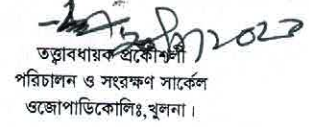 তত্ত্বাবধায়ক প্রকৌশলী
পরিচালন ও সংরক্ষণ সার্কেল
ওজোপাডিকোলিঃ,খুলনা।